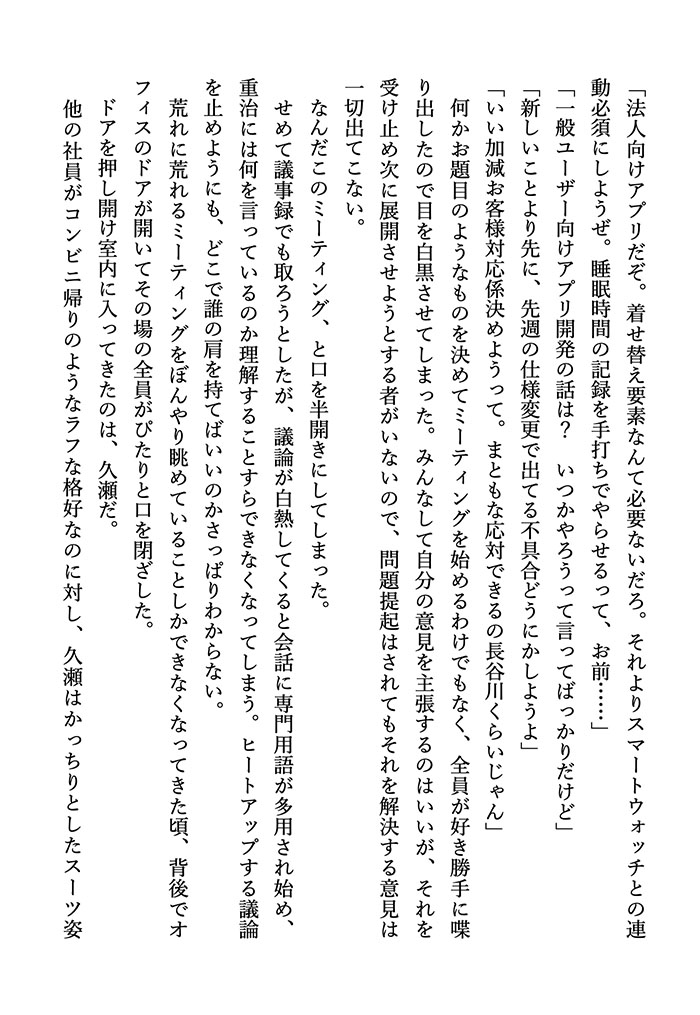 「法人向けアプリだぞ。着せ替え要素なんて必要ないだろ。それよりスマートウォッチとの連
動必須にしようぜ。睡眠時間の記録を手打ちでやらせるって、お前……」
「一般ユーザー向けアプリ開発の話は？　いつかやろうって言ってばっかりだけど」
「新しいことより先に、先週の仕様変更で出てる不具合どうにかしようよ」
「いい加減お客様対応係決めようって。まともな応対できるの長谷川くらいじゃん」
　何かお題目のようなものを決めてミーティングを始めるわけでもなく、全員が好き勝手に喋
り出したので目を白黒させてしまった。みんなして自分の意見を主張するのはいいが、それを
受け止め次に展開させようとする者がいないので、問題提起はされてもそれを解決する意見は
一切出てこない。
　なんだこのミーティング、と口を半開きにしてしまった。
　せめて議事録でも取ろうとしたが、議論が白熱してくると会話に専門用語が多用され始め、
重治には何を言っているのか理解することすらできなくなってしまう。ヒートアップする議論
を止めようにも、どこで誰の肩を持てばいいのかさっぱりわからない。
　荒れに荒れるミーティングをぼんやり眺めていることしかできなくなってきた頃、背後でオ
フィスのドアが開いてその場の全員がぴたりと口を閉ざした。
　ドアを押し開け室内に入ってきたのは、久瀬だ。
　他の社員がコンビニ帰りのようなラフな格好なのに対し、久瀬はかっちりとしたスーツ姿